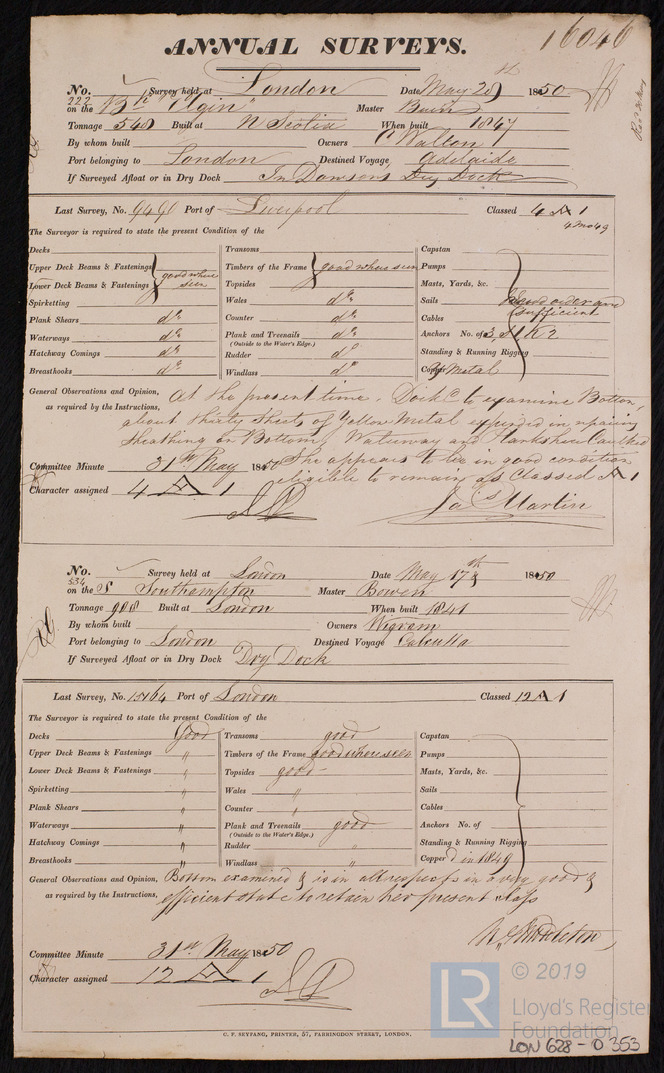 ANNUAL SURVEYS.
16046
No. 222 Survey held at London Date May 28 1850
on the Bk "Elgin" Master
Tonnage 548 Built at N Scotia When built 1847
By whom built Owners C Walton
Port belonging to London Destined Voyage Adelaide
If Surveyed Afloat or in Dry Dock In Dowsons Dry Dock
Last Survey, No. 9490 Port of Liverpool Classed 4 A 1
4 mo 49
The Surveyor is required to state the present Condition of the
Decks Transoms Capstan
Upper Deck Beams & Fastenings good where seen Timbers of the Frame good where seen Pumps
Lower Deck Beams & Fastenings Topsides Masts, Yards, &c.
Spirketting Wales do Sails In good order and sufficient
Plank Shears do Counter do Cables
Waterways do Plank and Treenails do Anchors No. of 3, S1, K2
(Outside to the Water's Edge.)
Hatchway Comings do Rudder do Standing & Running Rigging
Breasthooks do Windlass do Copper Y Metal
General Observations and Opinion, At the present time. Dock'd to examine Bottom,
as required by the Instructions, about thirty sheets of Yellow Metal expended in repairing
sheathing on Bottom, Waterway and Planksheer Caulked
Committee Minute 31st May 1850 She appears to be in good condition
eligible to remain as Classed A 1
Character assigned 4 A 1
Jas Martin
No. 334 Survey held at London Date May 17th 1850
on the S Southampton Master Bowen
Tonnage 908 Built at London When built 1841
By whom built Owners Wigram
Port belonging to London Destined Voyage Calcutta
If Surveyed Afloat or in Dry Dock Dry Dock
Last Survey, No. 15164 Port of London Classed 12 A 1
The Surveyor is required to state the present Condition of the
Decks Good Transoms good Capstan
Upper Deck Beams & Fastenings " Timbers of the Frame good where seen Pumps
Lower Deck Beams & Fastenings " Topsides good Masts, Yards, &c.
Spirketting " Wales " Sails
Plank Shears " Counter " Cables
Waterways " Plank and Treenails good Anchors No. of
(Outside to the Water's Edge.)
Hatchway Comings " Rudder " Standing & Running Rigging
Breasthooks " Windlass Copper'd in 1849
General Observations and Opinion, Bottom examined & is in all respects in a very good &
as required by the Instructions, efficient state to retain her present class
Committee Minute 31st May 1850
Character assigned 12 A 1
C. F. SEYFANG, PRINTER, 57, FARRINGDON STREET, LONDON.
LR © 2019
Lloyd's Register
Foundation
LON 628 - 0353